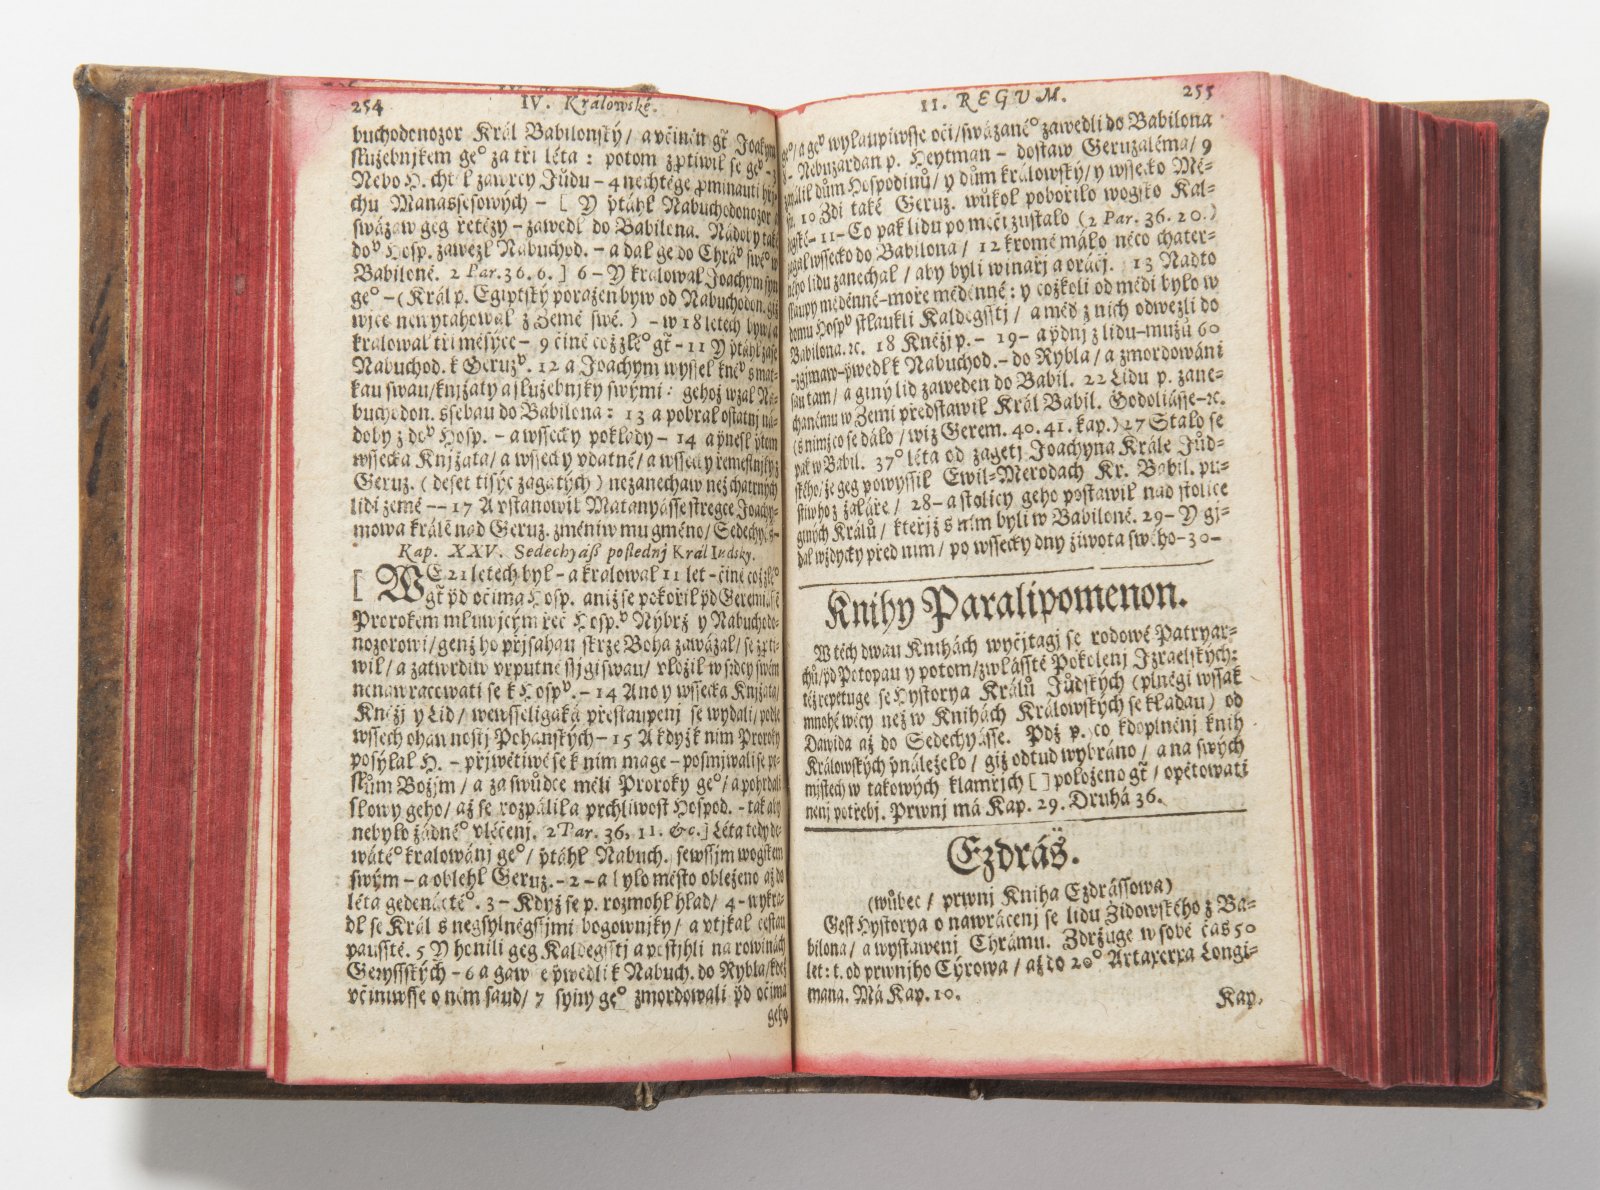 254 IV. Králowské.
buchodonozor Král Babilonský / a včiněn gt̃ Joakym
služebnjkem ge° za tři léta : potom zprotiwil se geᵛ -
Nebo H. chtěl zawrcy Jůdu - 4 nechtěge pminauti hřj-
chu Manassesowých - [ Y přtáhl Nabuchodonozor a
swázaw geg řetězy - zawedl do Babilona. Nádoby také
doᵛ Hosp. zawezl Nabuchod. - a dal ge do Chráᵛ swé° w
Babiloně. 2 Par. 36. 6. ] 6 - Y kralowal Joachym syn
ge° - ( Král p. Egiptský poražen byw od Nabuchodon. giž
wjce newytahowal z Země swé. ) - w 18 letech byw / a
kralowal tři měsýce - 9 čině což zlé° gt̃ - 11 Y přtáhl zase
Nabuchod. k Geruzᵛ. 12 a Joachym wyssel k něᵛ s mat-
kau swau / knjžaty a služebnjky swými : gehož wzal Na-
buchodon. ssebau do Babilona : 13 a pobral ostatnj ná-
doby z doᵛ Hosp. - a wssecky poklady - 14 a přnesl
wssecka Knjžata / a wssecky vdatné / a wssecky řemeslnjky z
Geruz. ( deset tisýc zagatých ) nezanechaw než chatrných
lidí země -- 17 A vstanowil Matanyásse streyce Joachy-
mowa králē nad Geruz. změniw mu gméno / Sedechyás-
Kap. XXV. Sedechyáß poslednj Král Iudsky.
[ WE 21 letech byl - a kralowal 11 let - čině což zlé°
gt̃ přd očima Hosp. aniž se pokořil přd Geremiásse
Prorokem mluwjcým řeč Hosp.ᵛ Nýbrž y Nabuchodo-
nozorowi / genž ho přjsahau skrze Boha zawázal / se zproti-
wil / a zatwrdiw vrputně ssjgi swau / vložil w srdcy swém
nenawracowati se k Hospᵛ. - 14 Ano y wssecka Knjžata /
Kněžj y Lid / wewsseligaká přestaupenj se wydali / podlé
wssech ohawnostj Pohanských - 15 A když k nim Proroky
posýlal H. - přjwětiwě se k nim mage - posmjwali se po-
slům Božjm / a za swůdce měli Proroky ge° / a pohrdali
slowy geho / až se rozpálila prchliwost Hospod. - tak aby
nebylo žádné° vléčenj. 2 Par. 36, 11. &c. ] Léta tedy de-
wáté° kralowánj ge° / přtáhl Nabuch. sewssjm wogskem
swým - a oblehl Geruz. - 2 - a bylo město obleženo až do
léta gedenácté°. 3 - Když se p. rozmohl hlad / 4 - wykra-
dl se Král s neysylněgssjmi bogownjky / a vtjkal cestau
pausstě. 5 Y honili geg Kaldegsstj a postjhli na rowinách
Gerysských - 6 a gaw ge přwedli k Nabuch. do Rybla / kdež
včiniwsse o něm saud / 7 syny ge° zmordowali přd očima
geho
II. REGUM. 255
ge° / a geᵛ wylaupiwsse oči / swázané° zawedli do Babilona
- Nebuzardan p. Heytman - dostaw Geruzaléma / 9
zpálil dům Hospodinů / y dům králowský / y wssecko Mě-
sto. 10 Zdi také Geruz. wůkol pobořilo wogsko Kal-
degské - 11 - Co pak lidu po meči zůstalo ( 2 Par. 36. 20. )
zagal wssecko do Babilona / 12 kromě málo něco chater-
ného lidu zanechal / aby byli winaři a oráči. 13 Nadto
slaupy měděnné - moře měděnné : y cožkoli od mědi bylo w
domu Hospᵛ stlaukli Kaldegsstj / a měď z nich odwezli do
Babilona. ꝛc. 18 Kněžj p. - 19 - a přdnj z lidu - mužů 60
- zgjmaw - přwedl k Nabuchod. - do Rybla / a zmordowáni
sau tam / a giný lid zaweden do Babil. 22 Lidu p. zane-
chanému w Zemi představil Král Babil. Godoliásse - ꝛc.
( s nimž co se dálo / wiz Gerem. 40. 41. kap. ) 27 Stalo se
pak w Babil. 37° léta od zagetj Joachyna Krále Jůd-
ského / že geg powyssil Ewil-Merodach Kr. Babil. pu-
stiw ho z žaláře / 28 - a stolicy geho postawil nad stolice
giných Králů / kteřjž s nim byli w Babiloně. 29 - Y gj-
dal wždycky před nim / po wssecky dny žiwota swého - 30 -
Knihy Paralipomenon.
W těch dwau Knihách wyčjtagj se rodowé Patryar-
chů / přd Potopau y potom / zwlásstě Pokolenj Izraelských :
též repetuge se Hystorya Králů Jůdských ( plněgi wssak
mnohé wěcy než w Knihách Králowských se kladau ) od
Dawida až do Sedechyásse. Pdž p. co k doplněnj knih
Králowských přnáleželo / giž odtud wybráno / a na swých
mjstech w takowých klamřjch [ ] položeno gt̃ / opětowati
nenj potřebj. Prwnj má Kap. 29. Druhá 36.
Ezdráš.
( wůbec / prwnj Kniha Ezdrássowa )
Gest Hystorya o nawrácenj se lidu Židowského z Ba-
bilona / a wystawenj Chrámu. Zdržuge w sobě čas 50
let : t. od prwnjho Cýrowa / až do 20° Artaxerxa Longi-
mana. Má Kap. 10.
Kap.